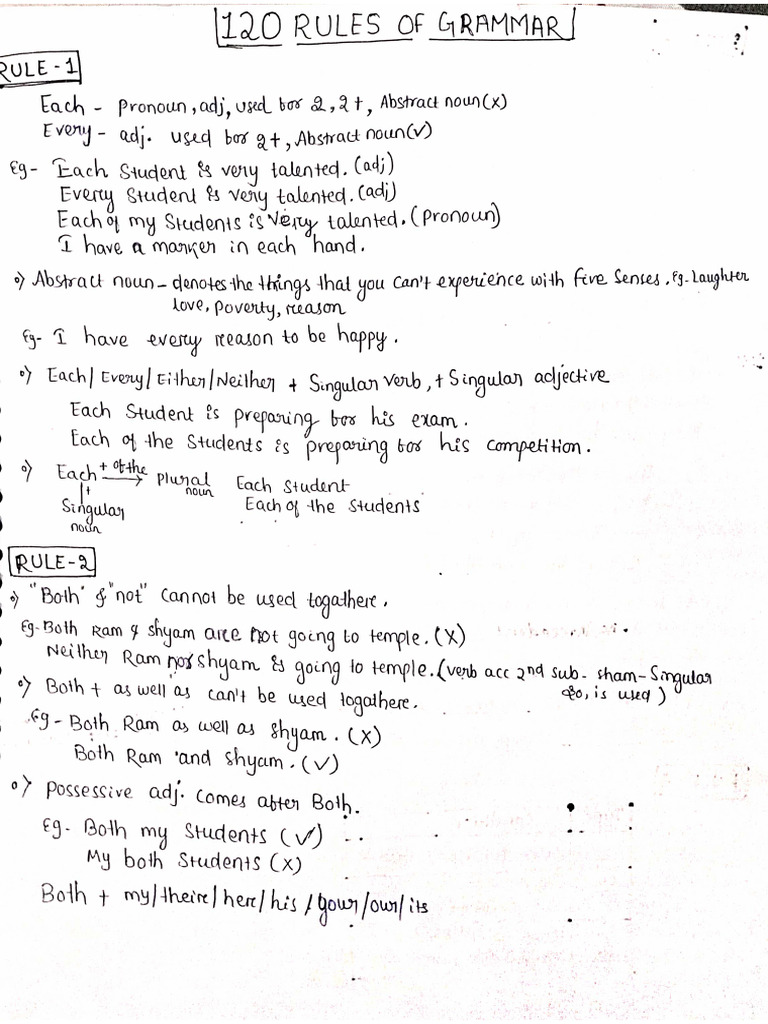 120 RULES OF GRAMMAR
RULE-1
Each - Pronoun, adj, used for 2, 2+, Abstract noun(x)
Every - adj. used for 2+, Abstract noun(✓)
Eg- Each Student is very talented. (adj)
Every Student is very talented. (adj)
Each of my Students is very talented. (Pronoun)
I have a marker in each hand.
Abstract noun - denotes the things that you can't experience with five senses. Eg. Laughter
love, poverty, reason
Eg- I have every reason to be happy.
Each/Every/Either/Neither + Singular verb, + Singular adjective
Each Student is preparing for his exam.
Each of the Students is preparing for his competition.
Each + of the → Plural noun Each Student
+ Singular noun Each of the Students
RULE-2
"Both" & "not" cannot be used togathere.
Eg- Both Ram & shyam are not going to temple. (X)
Neither Ram nor Shyam is going to temple. (verb acc 2nd sub- sham- Singular
so, is used)
Both + as well as can't be used togathere.
Eg- Both Ram as well as shyam. (X)
Both Ram and shyam. (✓)
Possessive adj. comes after Both.
Eg- Both my Students (✓)
My both Students (X)
Both + my/theire/here/his/your/our/its